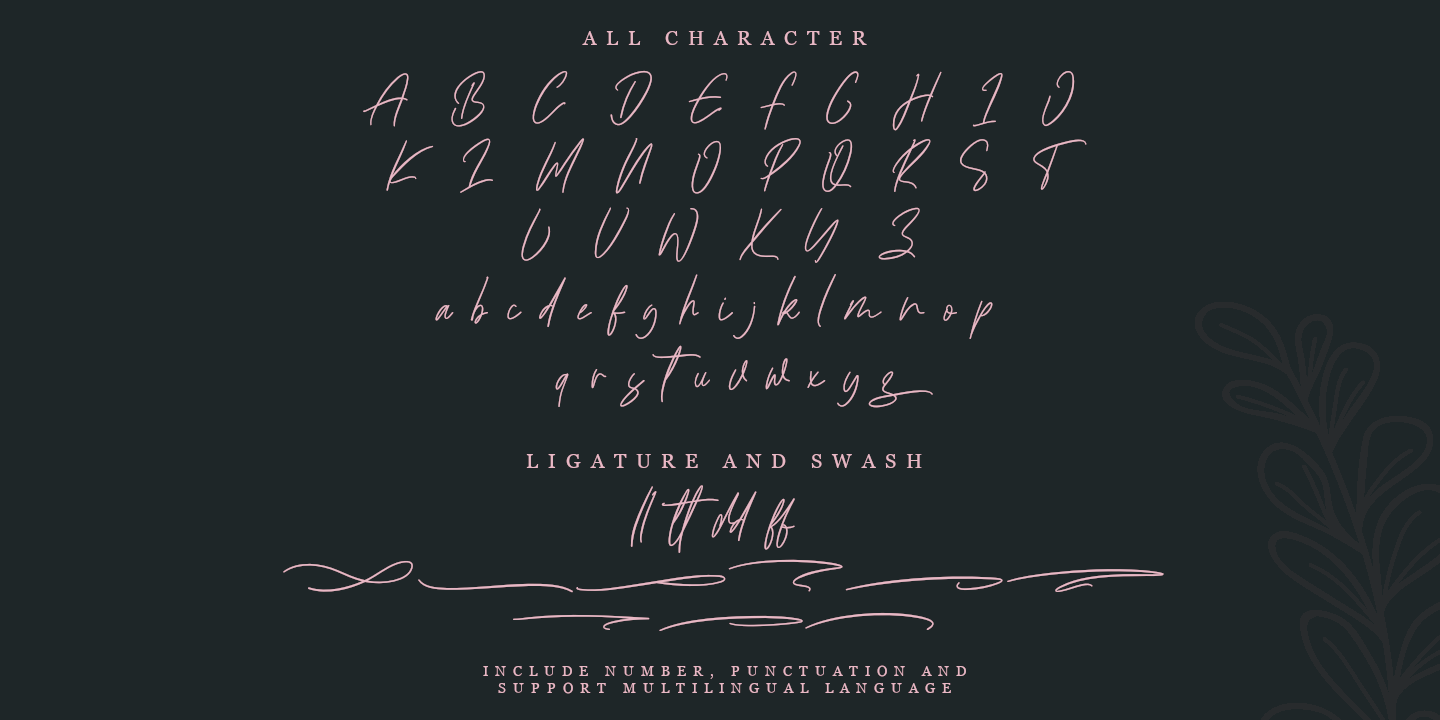 ALL CHARACTER
A B C D E F G H I J
K L M N O P Q R S T
U V W X Y Z
a b c d e f g h i j k l m n o p
q r s t u v w x y z
LIGATURE AND SWASH
ll tt dd ff
INCLUDE NUMBER, PUNCTUATION AND
SUPPORT MULTILINGUAL LANGUAGE